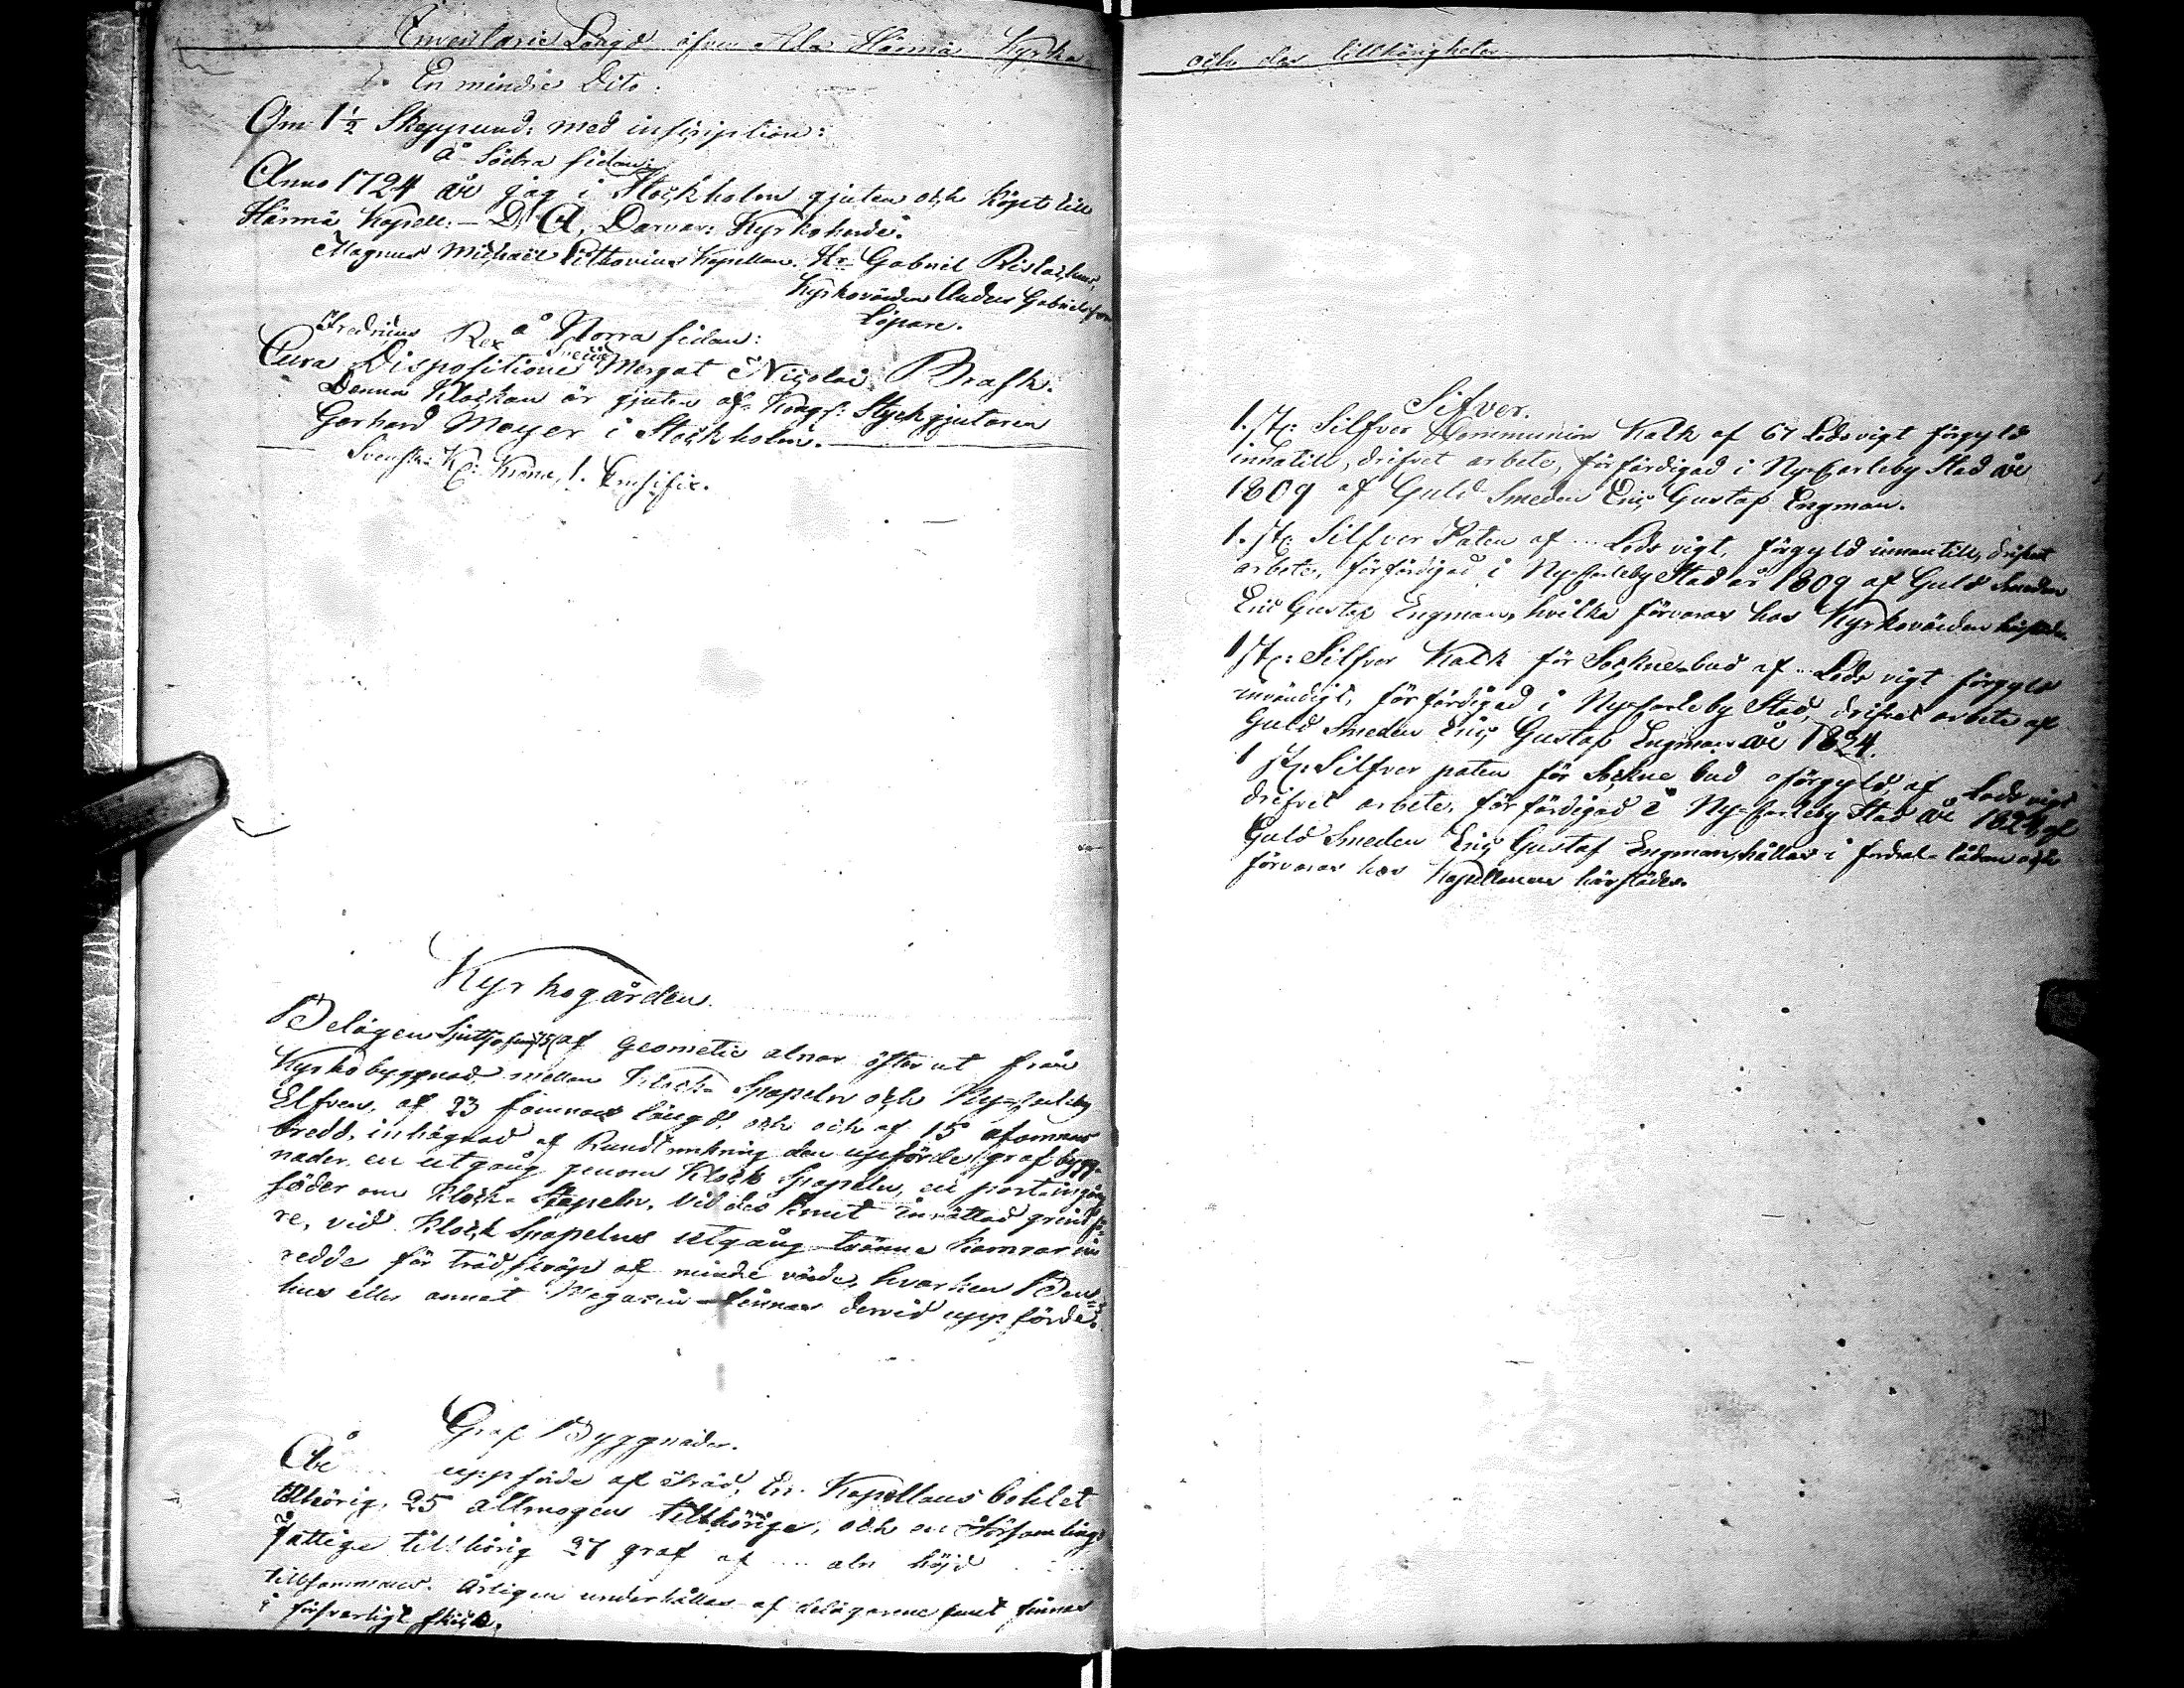 Inventarie Längd öfver Ala Härmä Kyrka
En mindre Dito.
Om 1½ Skeppund, med inscription:
å Södra sidan:
Anno 1724 är jag i Stockholm gjuten och köpt till
Härmä Kapell. — D. A. Kyrkoherde.
Magnus Michaël Lithovius Kapellan. Hr. Gabriel
Kyrkovärden Anders Gabrielsson
Löpare.
å Norra sidan:
Fredricus Rex Sveciæ
Cura Dispositione Nicolai Brask.
Denna Klockan är gjuten af Kongl: Styckgjutaren
Gerhard Meyer i Stockholm.
Svensk: K: Krona, 1. Crusifix.
Kyrkogården.
Belägen Sjuttjofem 75 af Geometric alnar öster ut från
Kyrkobyggnad mellan Klock Stapeln och Ny-Carleby
Elfven, af 23 famnars längd, och och af 15 famnars
bredd, inhägnad af Rundt omkring den uppförde grafbygg-
nader en utgång genom Klock Stapeln, en port ingång
söder om Klock Stapeln, vid des knut inrättad grind
re, vid Klock Stapelns utgång tvänne kamrar in
redde för träd skräp af mindre värde, hvarken Ben-
hus eller annat Magazin finnas dervid uppförde.
Graf Byggnader.
Äre uppförde af träd, En Kapellans bohlet
tillhörig, 25 allmogen tillhörige, och en Församlings
fattige tillhörig 27 graf af ... aln höjd
tillsammans. Årligen underhållas af delägarene samt finnas
i försvarligt skick.
och des tillhörigheter
Silver.
1. st: Silfver Communion Kalk af 67 Lods vigt förgyld
innatill, drifvet arbete, förfärdigad i Ny-Carleby Stad år
1809 af Guld Smeden Eric Gustaf Engman.
1. st: Silfver Paten af ... Lods vigt, förgyld innantill, drifvet
arbete, förfärdigad i Ny-Carleby Stad år 1809 af Guld Smeden
Eric Gustaf Engman, hvilka förvaras hos Kyrkovärden härstädes.
1 st: Silfver Kalk för Sockne-bud af ... Lods vigt förgyld
invändigt, förfärdigad i Ny-Carleby Stad, drifvet arbete af
Guld Smeden Eric Gustaf Engman år 1824.
1 st: Silfver paten för Sockne bud oförgyld, af Lods vigt
drifvet arbete, förfärdigad i Ny-Carleby Stad år 1824, af
Guld Smeden Eric Gustaf Engman, hållas i fodral lådan och
förvaras hos Kapellanen härstädes.